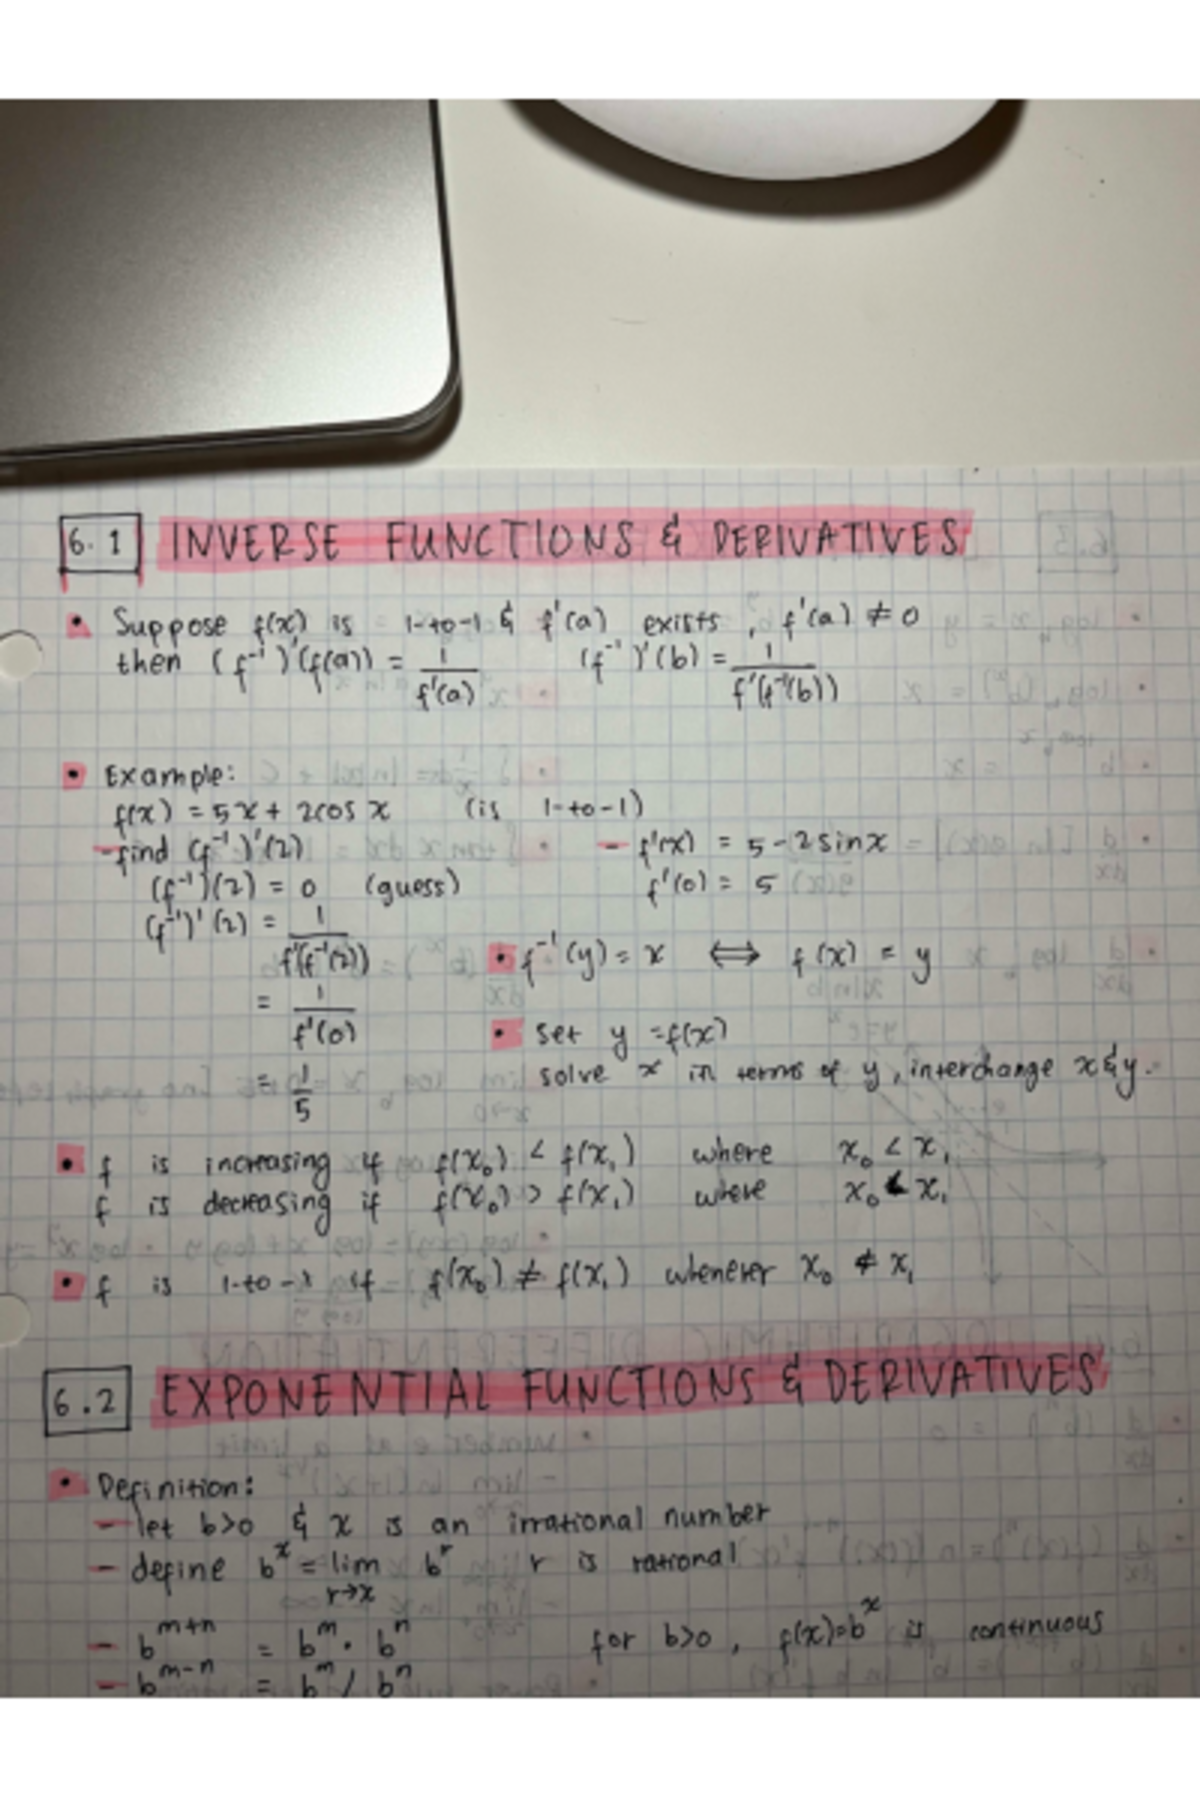 6.1 INVERSE FUNCTIONS & DERIVATIVES
• Suppose f(x) is 1-to-1 & f'(a) exists, f'(a) ≠ 0
then (f⁻¹)'(f(a)) = 1/f'(a) (f⁻¹)'(b) = 1/f'(f⁻¹(b))
• Example:
f(x) = 5x + 2cos x (is 1-to-1)
- find (f⁻¹)'(2)
(f⁻¹)(2) = 0 (guess)
(f⁻¹)'(2) = 1/f'(f⁻¹(2))
= 1/f'(0)
= 1/5
- f'(x) = 5 - 2sinx
f'(0) = 5
• f⁻¹(y) = x ⟺ f(x) = y
• set y = f(x)
solve x in terms of y, interchange x & y.
• f is increasing if f(x₀) < f(x₁) where x₀ < x₁
f is decreasing if f(x₀) > f(x₁) where x₀ < x₁
• f is 1-to-1 if f(x₀) ≠ f(x₁) whenever x₀ ≠ x₁
6.2 EXPONENTIAL FUNCTIONS & DERIVATIVES
• Definition:
- let b>0 & x is an irrational number
- define bˣ = lim bʳ r is rational
r→x
- bᵐ⁺ⁿ = bᵐ · bⁿ for b>0, f(x)=bˣ is continuous
- bᵐ⁻ⁿ = bᵐ / bⁿ